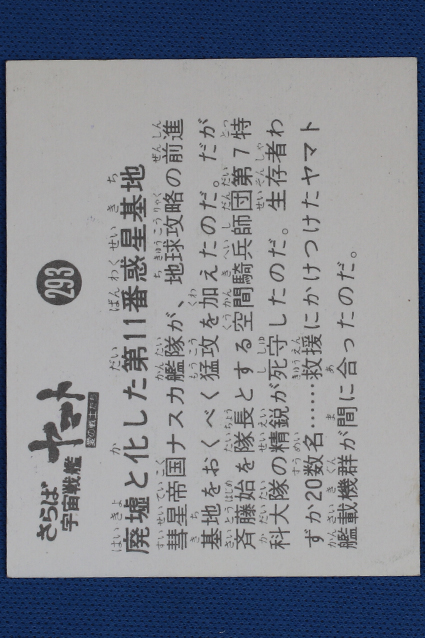 さらば
宇宙戦艦
ヤマト
愛の戦士たち
293
廃墟と化した第11番惑星基地
彗星帝国ナスカ艦隊が、地球攻略の前進
基地をおくべく猛攻を加えたのだ。だが
斉藤始を隊長とする空間騎兵師団第7特
科大隊の精鋭が死守したのだ。生存者わ
ずか20数名……救援にかけつけたヤマト
艦載機群が間に合ったのだ。